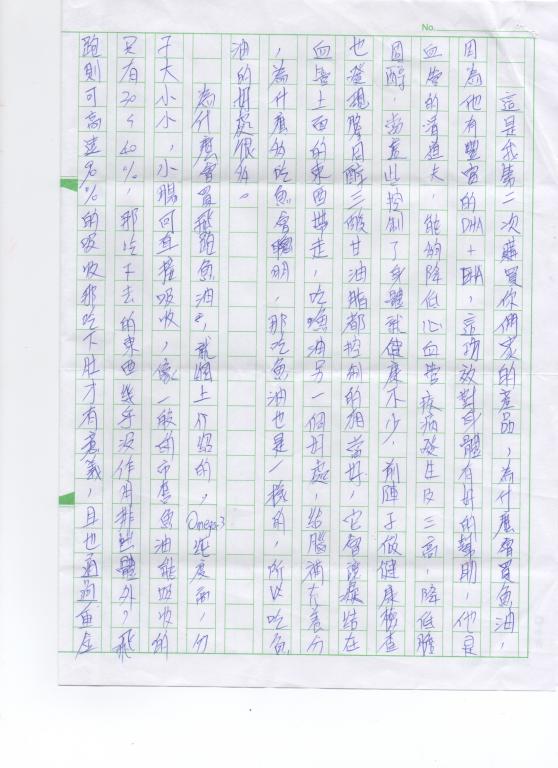 No.
這是我第二次購買你們家的產品，為什麼會買魚油，
因為他有豐富的DHA+EHA，這功效對身體有好的幫助，他是
血管的清道夫，能夠降低心血管疾病發生及三高，降低膽
固醇，當這些控制了身體就健康不少，前陣子做健康檢查
也發現膽固醇三酸甘油脂都控制的相當好，它會把凝結在
血管上面的東西帶走，吃魚油另一個好處，給腦補充養分
，為什麼的吃魚會聰明，那吃魚油也是一樣的，所以吃魚
油的好處很多。
為什麼會買飛跑魚油？，就網上介紹的，Omega-3純度高，分
子大小小，小腸可直接吸收，像一般的市售魚油能吸收的
只有30～40%，那吃下去的東西幾乎沒作用排出體外，飛
跑則可高達96%的吸收那吃下肚才有意義，且也通過重金